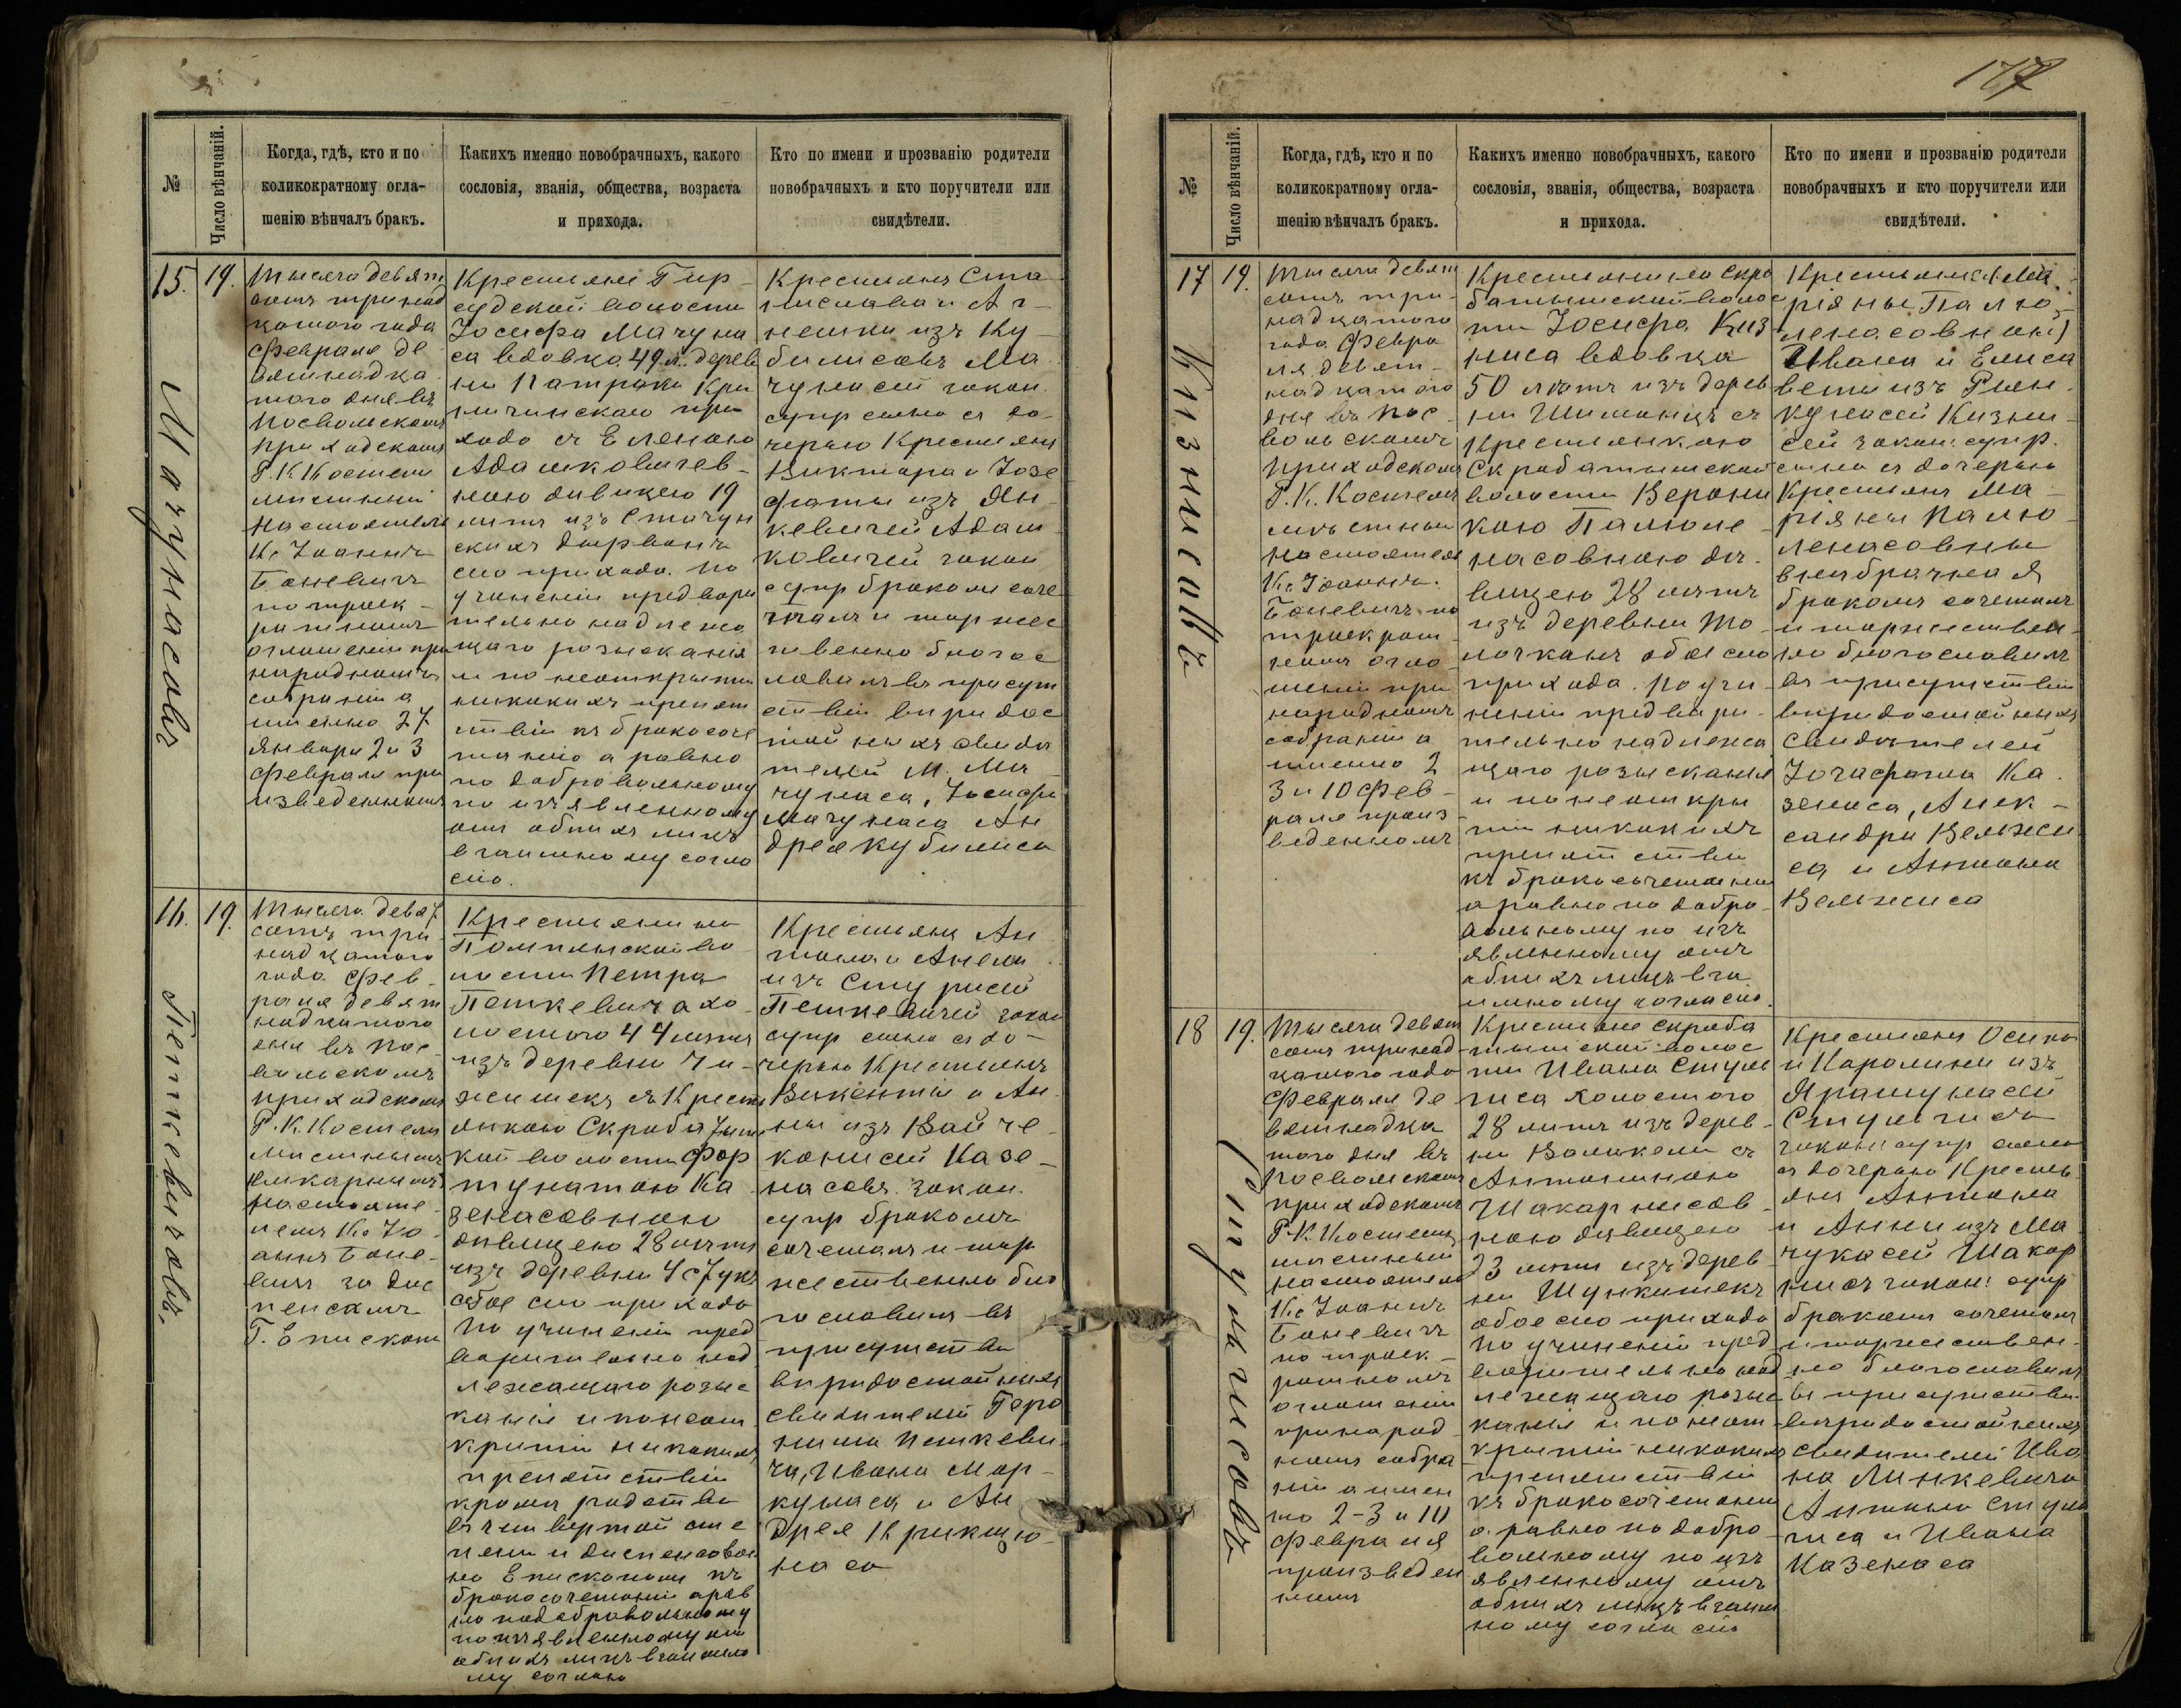 117
№
Число вѣнчаній.
Когда, гдѣ, кто и по
коликократному огла-
шенію вѣнчалъ бракъ.
Какихъ именно новобрачныхъ, какого
сословія, званія, общества, возраста
и прихода.
Кто по имени и прозванію родители
новобрачныхъ и кто поручители или
свидѣтели.
15.
19.
Мачунасовъ
Тысяча девят
сотъ тринад
цатого года
Февраля де
вятнадца
того дня въ
Посвольскомъ
приходскомъ
Р. К. Костелѣ
мѣстный
настоятель
Кс. Іоаннъ
Боневичъ
по троек-
ратномъ
оглашеніи при
народномъ
собраніи а
именно 27
Января 2 и 3
Февраля про
изведенномъ
Крестьяне Гир-
судской волости
Іосифа Мачуна
са вдовца 49 л. дерев
ни Патраки Кри
ничинскаго при
хода съ Еленою
Адамковичев-
ною дѣвицею 19
лѣтъ изъ
скихъ
сего прихода. По
учиненіи предвари
тельно надлежа
щаго розысканія
и по неоткрытіи
никакихъ препят
ствій къ бракосоче
танію а равно
по добровольному
по изъявленному
отъ обоихъ лицъ
взаимному согла
сію.
Крестьянъ Ста
нислава и Аг-
нешки изъ Ку-
билисовъ Ма
чунасей закон.
супр сына съ до-
черью Крестьянъ
Виктора и Іозе
фаты изъ Ян-
кевичей Адам
ковичей закон
супр бракомъ соче
талъ и торжес
твенно благос
ловилъ въ присут
ствіи вѣридос
тойныхъ свидѣ
телей М. Ма
чунаса, Іосифа
Мачунаса Ан
дрея Кубилиса
16.
19.
Петкевичовъ.
Тысяча девят
сотъ три
надцатого
года Фев-
раля девят
надцатого
дня въ Пос-
вольскомъ
приходскомъ
Р. К. Костелѣ
мѣстнымъ
викарнымъ
настояте-
лемъ Кс. Іо
аннъ Боне-
вичъ за дис
пенсомъ
Г. Епископа
Крестьянина
Помпянской во
лости Петра
Петкевича хо
лостого 44 лѣтъ
изъ деревни Чи-
жишекъ съ Крест
янкою Скробатыш
кой волости Фор
тунатою Ка
зенасовною
дѣвицею 28 лѣтъ
изъ деревни
обое сего прихода
По учиненіи пред
варительно над
лежащаго розыс
канія и по неот
крытіи никакихъ
препятствій
кромѣ родства
въ четвертой сте
пени и диспенсован
но Епископомъ къ
бракосочетанію а рав
но по добровольному
по изъявленному отъ
обоихъ лицъ взаимно
му согласію
Крестьянъ Ан
тона и Анели
изъ Стурисей
Петкевичей закон
супр сына съ до-
черью Крестьянъ
Викентія и Ан
ны изъ Вайче
конисей Казе-
насовъ закон.
супр бракомъ
сочеталъ и тор
жественно бла
гословилъ въ
присутствіи
вѣридостойныхъ
свидѣтелей Геро
нима Петкеви
ча, Ивана Мар-
кунаса и Ан
дрея Крикщю-
наса
№
Число вѣнчаній.
Когда, гдѣ, кто и по
коликократному огла-
шенію вѣнчалъ бракъ.
Какихъ именно новобрачныхъ, какого
сословія, званія, общества, возраста
и прихода.
Кто по имени и прозванію родители
новобрачныхъ и кто поручители или
свидѣтели.
17
19.
Кизнисовъ
Тысяча девят
сотъ три-
надцатого
года Февра
ля девят-
надцатого
дня въ Пос-
вольскомъ
приходскомъ
Р. К. Костелѣ
мѣстный
настоятель
Кс. Іоаннъ
Боневичъ по
троекрат-
номъ огла-
шеніи при
народномъ
собраніи а
именно 2
3 и 10 Фев-
раля произ
веденномъ
Крестьянина Скро
батышской волос
ти Іосифа Киз
ниса вдовца
50 лѣтъ изъ дерев
ни Шиманцъ съ
Крестьянкою
Скробатышской
волости Верони
кою Палюле-
насовною дѣ-
вицею 28 лѣтъ
изъ деревни То-
лочканъ обое сего
прихода. По учи-
неніи предвари-
тельно надлежа
щаго розысканія
и по неоткры
тіи никакихъ
препятствій
къ бракосочетанію
а равно по добро-
вольному по изъ
явленному отъ
обоихъ лицъ вза
имному согласію.
Крестьянки Ма
ріяны Палю
ленасовны
Ивана и Елиса
веты изъ Рин
кунасей Кизни
сей закон. супр.
сына съ дочерью
Крестьянки Ма-
ріяны Палю-
ленасовны
внѣбрачная
бракомъ сочеталъ
и торжествен-
но благословилъ
въ присутствіи
вѣридостойныхъ
свидѣтелей
Іозафата Ка
зенаса, Алек-
сандра Велжи
са и Антона
Велжиса
18
19.
Стульгисовъ
Тысяча девят
сотъ тринад
цатого года
Февраля де
вятнадца
того дня въ
Посвольскомъ
приходскомъ
Р. К. Костелѣ
мѣстный
настоятель
Кс. Іоаннъ
Боневичъ
по троек-
ратномъ
оглашеніи
при народ
номъ собра
ніи а имен
но 2-3 и 10
Февраля
произведен
номъ
Крестьяне Скроба
тышской волос
ти Ивана Стуль
гиса холостого
28 лѣтъ изъ дерев-
ни Валикели съ
Антониною
Шакарнисов-
ною дѣвицею
23 лѣтъ изъ дерев-
ни Шункишекъ
обое сего прихода
По учиненіи пред
варительно над
лежащаго розыс
канія и по неот
крытіи никакихъ
препятствій
къ бракосочетанію
а равно по добро
вольному по изъ
явленному отъ
обоихъ лицъ взаим
ному согласію
Крестьянъ Осипа
и Каролины изъ
Ярашунасей
Стульгисъ
закон супр сына
съ дочерью Кресть
янъ Антона
и Анны изъ Ма
чукасей Шакар
нисъ закон. супр
бракомъ сочеталъ
и торжествен-
но благословилъ
въ присутствіи
вѣридостойныхъ
свидѣтелей Ива
на Линкевича
Антона Стуль
гиса и Ивана
Казенаса